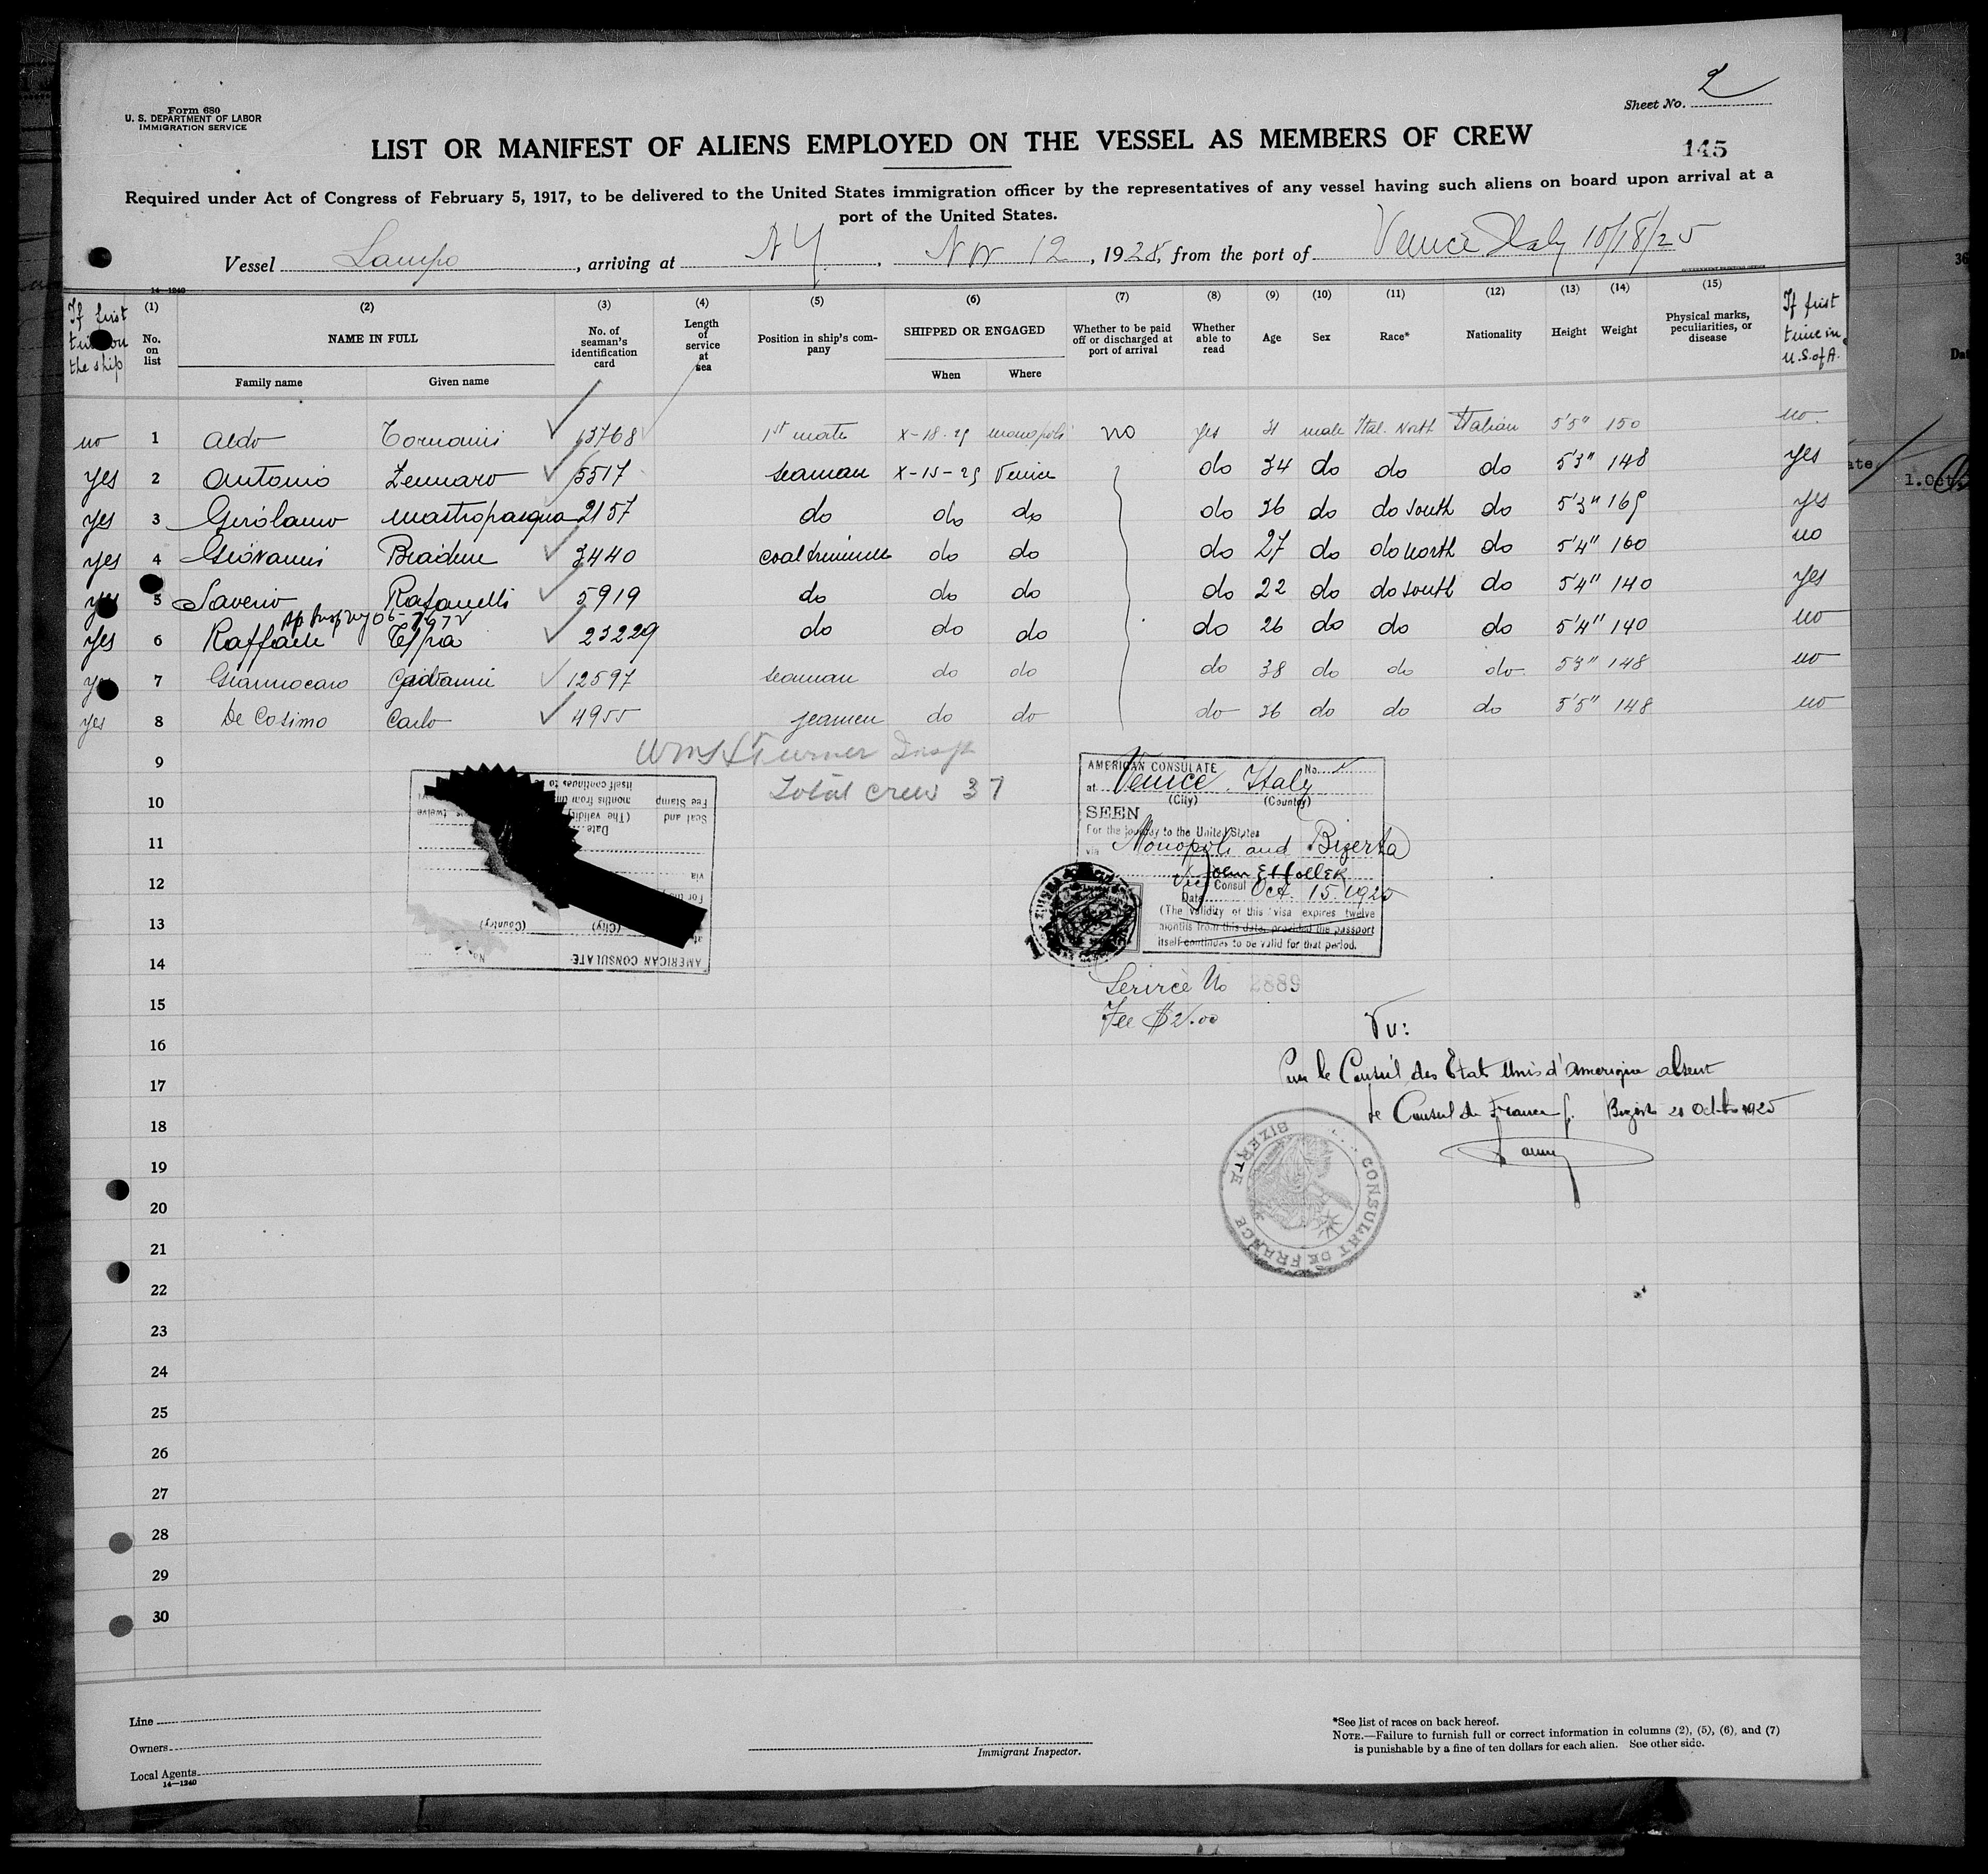 Form 680
U. S. DEPARTMENT OF LABOR
IMMIGRATION SERVICE
Sheet No. 2
145
LIST OR MANIFEST OF ALIENS EMPLOYED ON THE VESSEL AS MEMBERS OF CREW
Required under Act of Congress of February 5, 1917, to be delivered to the United States immigration officer by the representatives of any vessel having such aliens on board upon arrival at a
port of the United States.
Vessel Lampo, arriving at N Y, Nov 12, 1925, from the port of Venice Italy 10/18/25
GOVERNMENT PRINTING OFFICE
14—1240
If first time on the ship (1) No. on list (2) NAME IN FULL Family name Given name (3) No. of seaman's identification card (4) Length of service at sea (5) Position in ship's company (6) SHIPPED OR ENGAGED When Where (7) Whether to be paid off or discharged at port of arrival (8) Whether able to read (9) Age (10) Sex (11) Race* (12) Nationality (13) Height (14) Weight (15) Physical marks, peculiarities, or disease If first time in U.S. of A.
no 1 Aldo 13768 1st mate X-18-25 Monopoli no yes 31 male Ital. North Italian 5'5" 150 no
yes 2 Antonio Zennaro 5517 seaman X-15-25 Venice do 34 do do do 5'3" 148 yes
yes 3 Girolamo Mastropasqua 2157 do do do do 36 do do South do 5'3" 165 yes
yes 4 Giovanni 3440 coal trimmer do do do 27 do do North do 5'4" 160 no
yes 5 Saverio Rafanelli 5919 do do do do 22 do do South do 5'4" 140 yes
yes 6 Raffaele 23229 do do do do 26 do do do 5'4" 140 no
yes 7 Giannocaro Giovanni 12597 seaman do do do 38 do do do 5'3" 148 no
yes 8 De Cosimo Carlo 4955 seamen do do do 36 do do do 5'5" 148 no
9
Wm H Turner Insp
10
Total crew 37
11
12
13
14
15
16
17
18
19
20
21
22
23
24
25
26
27
28
29
30
AMERICAN CONSULATE No.
at Venice Italy
(City) (Country)
SEEN
For the journey to the United States
via Monopoli and Bizerta
John E Holler
Vice Consul
Date Oct. 15. 1925
(The validity of this visa expires twelve
months from this date, provided the passport
itself continues to be valid for that period.
Service No 2889
Fee $2.00
Vu:
Pour le Consul des Etats Unis d'Amerique absent
le Consul de France
CONSULAT DE FRANCE BIZERTE
AMERICAN CONSULATE
No.
(City) (Country)
via
Date
Seal and
Fee Stamp
(The validity
twelve
months from
itself continues to
Line
Owners
Local Agents
14—1240
Immigrant Inspector.
*See list of races on back hereof.
NOTE.—Failure to furnish full or correct information in columns (2), (5), (6), and (7)
is punishable by a fine of ten dollars for each alien. See other side.